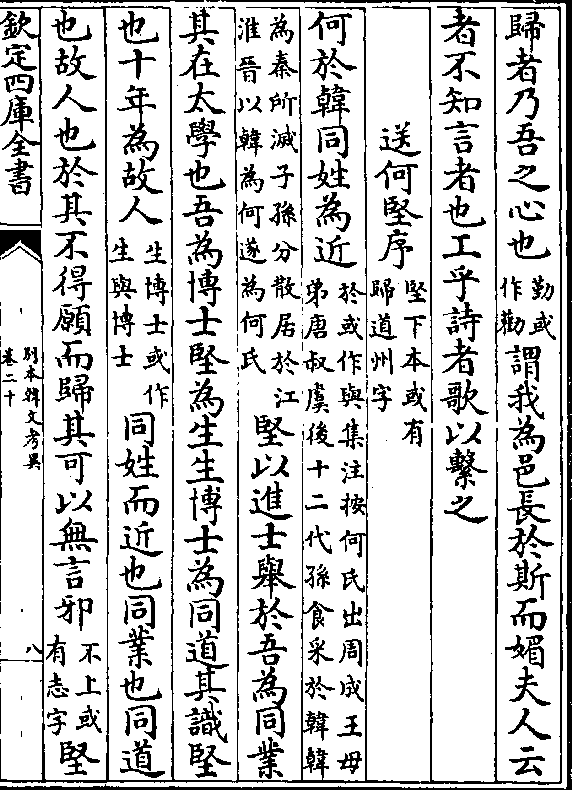 歸者乃吾之心也勤或作勸謂我為邑長於斯而媚夫人云
者不知言者也工乎詩者歌以繫之
送何堅序堅下本或有歸道州字
何於韓同姓為近於或作與集注按何氏出周成王毋弟唐叔虞後十二代孫食采於韓韓
為秦所滅子孫分散居於江淮晉以韓為何遂為何氏堅以進士舉於吾為同業
其在太學也吾為博士堅為生生博士為同道其識堅
也十年為故人生博士或作生與博士同姓而近也同業也同道
也故人也於其不得願而歸其可以無言邪不上或有志字堅
欽定四庫全書
別本韓文考異
卷二十
八